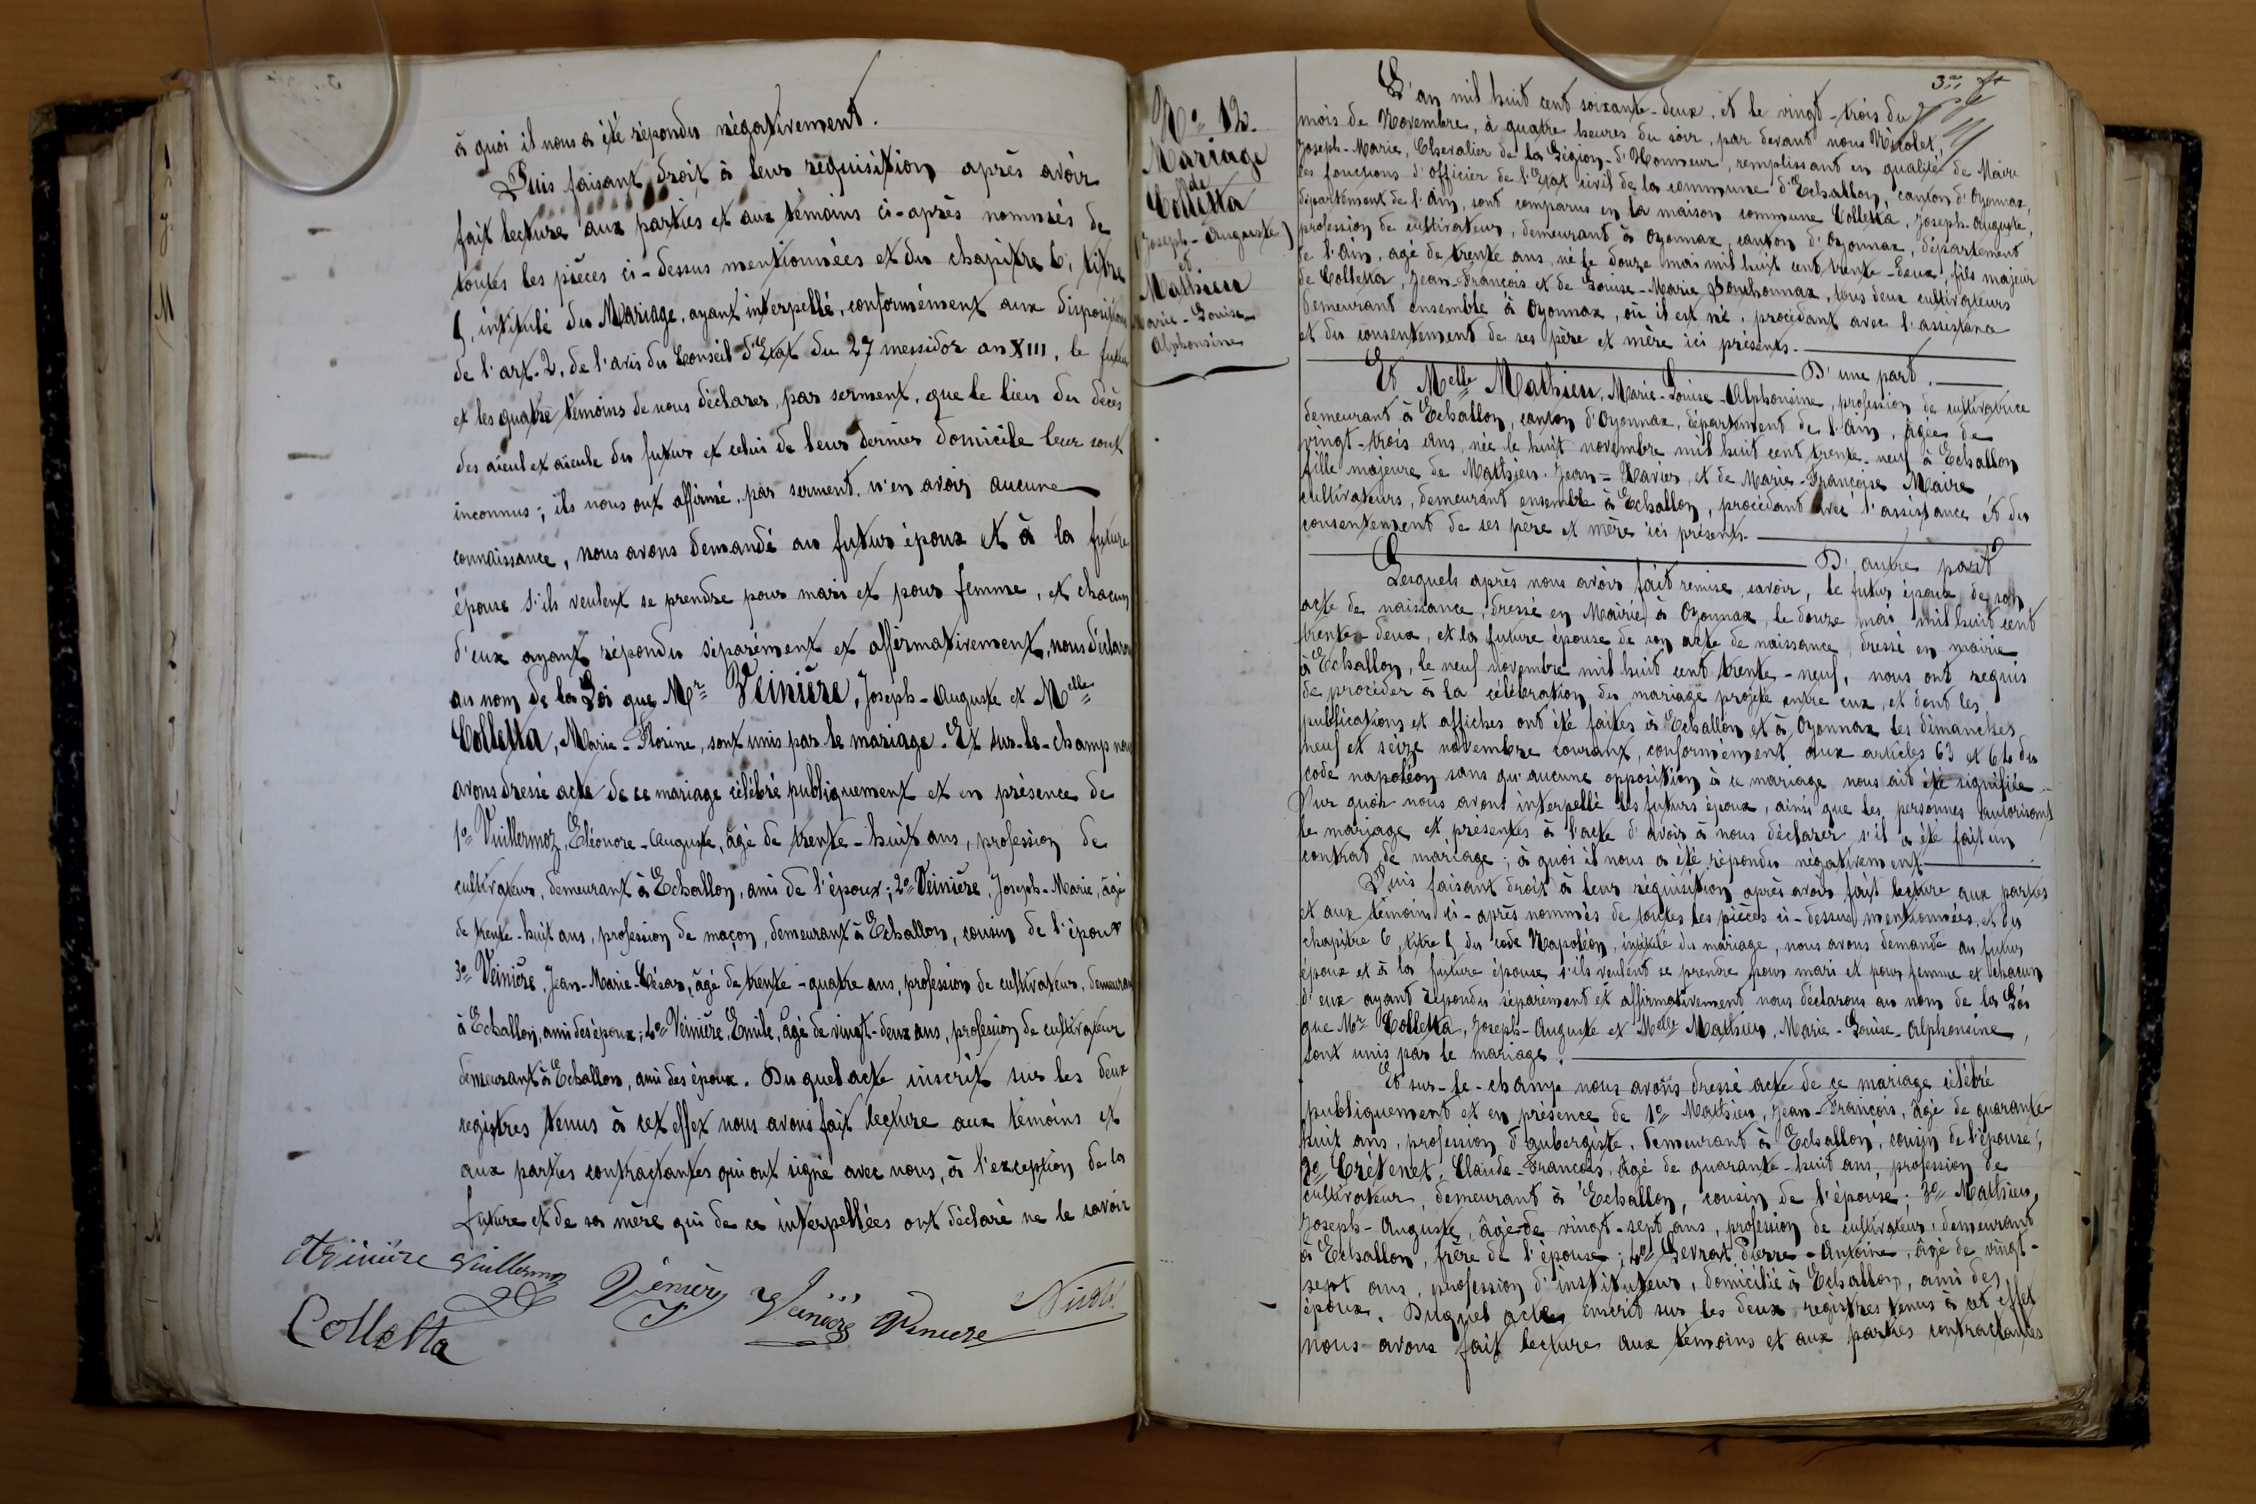 à quoi il nous a été répondu négativement.
Puis faisant droit à leur réquisition après avoir
fait lecture aux parties et aux témoins ci-après nommés de
toutes les pièces ci-dessus mentionnées et du chapitre 6, titre
5, intitulé du Mariage, ayant interpellé, conformément aux dispositions
de l'art. 2, de l'avis du Conseil d'Etat du 27 messidor an XIII, le futur
et les quatre témoins de nous déclarer, par serment, que le lieu du décès
des aïeul et aïeule du futur et celui de leur dernier domicile leur sont
inconnus; ils nous ont affirmé, par serment, n'en avoir aucune
connaissance, nous avons demandé au futur époux et à la future
épouse s'ils veulent se prendre pour mari et pour femme, et chacun
d'eux ayant répondu séparément et affirmativement, nous déclarons
au nom de la Loi que Mr Veinière, Joseph-Auguste et Melle
Colletta, Marie-Florine, sont unis par le mariage. Et sur-le-champ nous
avons dressé acte de ce mariage célébré publiquement et en présence de
1o Vuillermoz, Eléonore-Auguste, âgé de trente-huit ans, profession de
cultivateur, demeurant à Echallon, ami de l'époux; 2o Veinière, Joseph-Marie, âgé
de trente-huit ans, profession de maçon, demeurant à Echallon, cousin de l'époux
3o Veinière, Jean-Marie-César, âgé de trente-quatre ans, profession de cultivateur, demeurant
à Echallon, ami des époux; 4o Veinière, Emile, âgé de vingt-deux ans, profession de cultivateur
demeurant à Echallon, ami des époux. Du quel acte inscrit sur les deux
registres tenus à cet effet nous avons fait lecture aux témoins et
aux parties contractantes qui ont signé avec nous, à l'exception de la
future et de sa mère qui de ce interpellées ont déclaré ne le savoir
Vuillermoz
Veinière
Colletta
No 12.
Mariage
de
Colletta
(Joseph-Auguste)
et
Mathieu
Marie-Louise-
Alphonsine
L'an mil huit cent soixante-deux, et le vingt-trois du
mois de Novembre, à quatre heures du soir, par devant nous Nicolet,
Joseph-Marie, Chevalier de la Légion-d'Honneur, remplissant en qualité de Maire
les fonctions d'officier de l'Etat civil de la commune d'Echallon, canton d'Oyonnax,
département de l'Ain, sont comparus en la maison commune Colletta, Joseph-Auguste,
profession de cultivateur, demeurant à Oyonnax, canton d'Oyonnax, département
de l'Ain, agé de trente ans, né le douze mai mil huit cent trente-deux, fils majeur
de Colletta, Jean-François et de Louise-Marie Bonhonnax, tous deux cultivateurs
demeurant ensemble à Oyonnax, où il est né, procédant avec l'assistance
et du consentement de ses père et mère ici présents.
D'une part.
Et Melle Mathieu, Marie-Louise-Alphonsine, profession de cultivatrice
demeurant à Echallon, canton d'Oyonnax, département de l'Ain, âgée de
vingt-trois ans, née le huit novembre mil huit cent trente-neuf à Echallon
fille majeure de Mathieu Jean-Xavier, et de Marie-Françoise Maire
cultivateurs, demeurant ensemble à Echallon, procédant avec l'assistance et du
consentement de ses père et mère ici présents.
D'autre part
Lesquels après nous avoir fait remise, savoir, le futur époux de son
acte de naissance, dressé en Mairie à Oyonnax, le douze mai mil huit cent
trente-deux, et la future épouse de son acte de naissance, dressé en mairie
à Echallon, le neuf novembre mil huit cent trente-neuf, nous ont requis
de procéder à la célébration du mariage projeté entre eux, et dont les
publications et affiches ont été faites à Echallon et à Oyonnax les dimanches
neuf et seize novembre courant, conformément aux articles 63 et 64 du
code napoléon sans qu'aucune opposition à ce mariage nous ait été signifiée.
Sur quoi nous avons interpellé les futurs époux, ainsi que les personnes autorisant
le mariage et présentes à l'acte d'avoir à nous déclarer s'il a été fait un
contrat de mariage; à quoi il nous a été répondu négativement.
Puis faisant droit à leur réquisition après avoir fait lecture aux parties
et aux témoins ci-après nommés de toutes les pièces ci-dessus mentionnées, et du
chapitre 6, titre 5 du code Napoléon, intitulé du mariage, nous avons demandé au futur
époux et à la future épouse s'ils veulent se prendre pour mari et pour femme et chacun
d'eux ayant répondu séparément et affirmativement nous déclarons au nom de la Loi
que Mr Colletta, Joseph-Auguste et Melle Mathieu, Marie-Louise-Alphonsine,
sont unis par le mariage.
Et sur-le-champ nous avons dressé acte de ce mariage célébré
publiquement et en présence de 1o Mathieu, Jean-François, âgé de quarante-
huit ans, profession d'aubergiste, demeurant à Echallon, cousin de l'épouse;
2o Crétenet, Claude-François, âgé de quarante-huit ans, profession de
cultivateur, demeurant à Echallon, cousin de l'épouse; 3o Mathieu,
Joseph-Auguste, âgé de vingt-sept ans, profession de cultivateur, demeurant
à Echallon, frère de l'épouse; 4o Levrat Pierre-Antoine, âgé de vingt-
sept ans, profession d'instituteur, domicilié à Echallon, ami des
époux. Duquel acte inscrit sur les deux registres tenus à cet effet
nous avons fait lecture aux témoins et aux parties contractantes